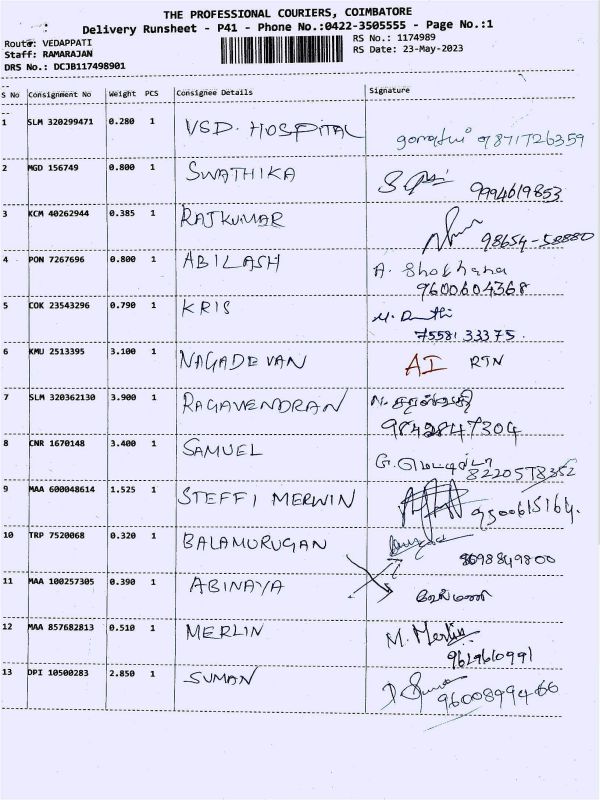 THE PROFESSIONAL COURIERS, COIMBATORE
Delivery Runsheet - P41 - Phone No.:0422-3505555 - Page No.:1
Route: VEDAPPATI RS No.: 1174989
Staff: RAMARAJAN RS Date: 23-May-2023
DRS No.: DCJB117498901
S No Consignment No Weight PCS Consignee Details Signature
1 SLM 320299471 0.280 1 VSD. HOSPITAL
9871726359
2 MGD 156749 0.800 1 SWATHIKA
9994619853
3 KCM 40262944 0.385 1 RAJKUMAR
98654-58880
4 PON 7267696 0.800 1 ABILASH A. Shobhana
9600604368
5 COK 23543296 0.790 1 KRIS
75581 33375.
6 KMU 2513395 3.100 1 NAGADEVAN AI RTN
7 SLM 320362130 3.900 1 RAGAVENDRAN
9842847304
8 CNR 1670148 3.400 1 SAMUEL
8220578352
9 MAA 600048614 1.525 1 STEFFI MERWIN 9500615164.
10 TRP 7520068 0.320 1 BALAMURUGAN
8698849800
11 MAA 100257305 0.390 1 ABINAYA
12 MAA 857682813 0.510 1 MERLIN M. Merlin
9629610991
13 DPI 10500283 2.850 1 SUMAN
9600899466